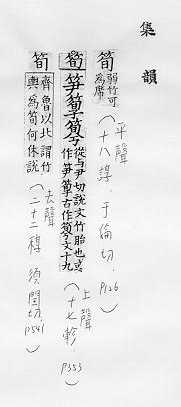 集韻
筍 弱竹可為席(平聲 十八諄．于倫切．P126)
筍 笋䇯筍 聳尹切說文竹胎也或作笋䇯古作筍文十九(上聲 十七軫．P353)
筍 齊魯以北謂竹輿為筍何休說(去聲 二十二稕 須閏切．P541)